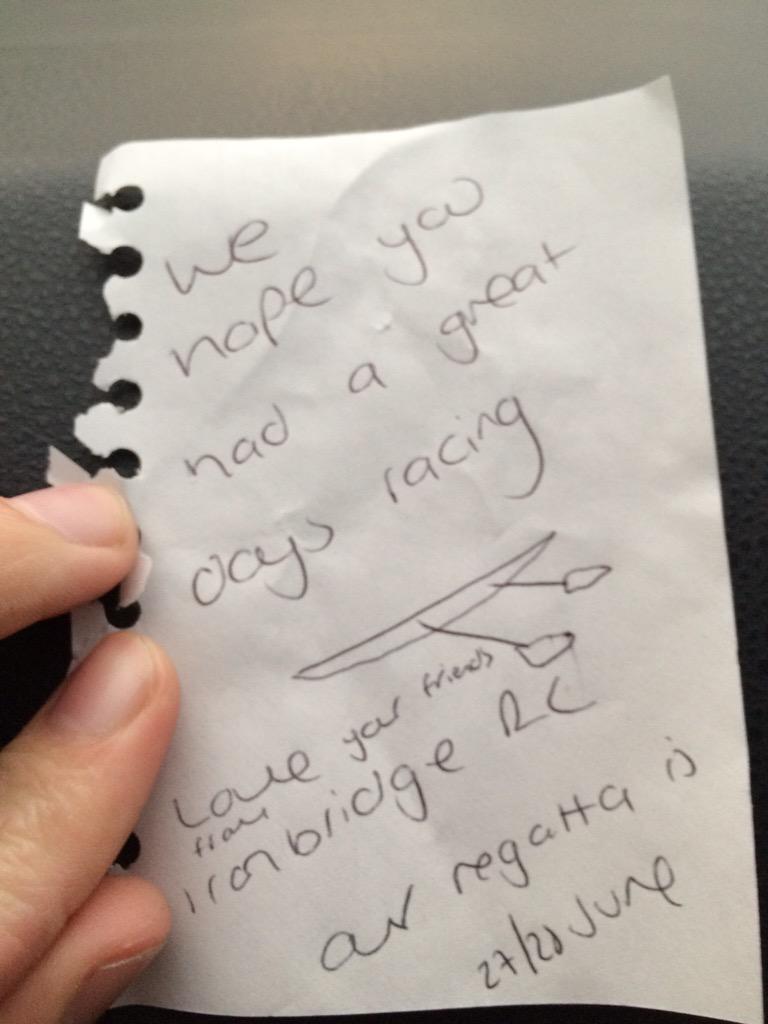 we
hope you
had a great
days racing
Love your friends
from
ironbridge RC
our regatta is
27/28 June